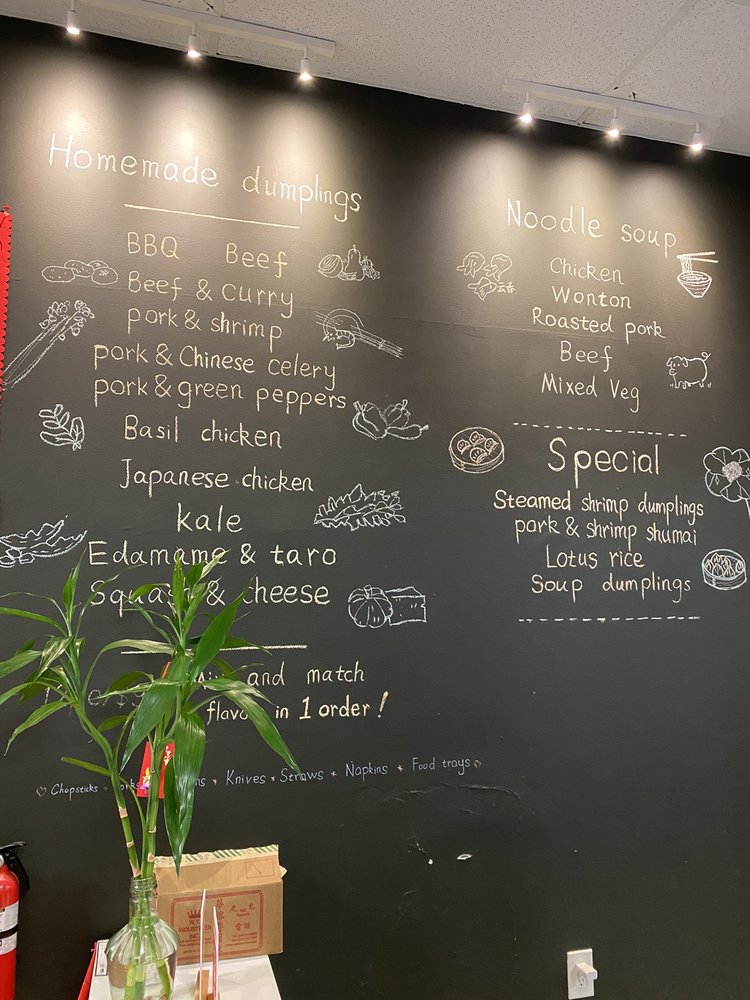 Homemade dumplings
BBQ Beef
Beef & curry
pork & shrimp
pork & Chinese celery
pork & green peppers
Basil chicken
Japanese chicken
kale
Edamame & taro
Squash & cheese
and match
flavor in 1 order!
♡ Chopsticks * Knives * Straws * Napkins * Food trays ♡
Noodle soup
云吞
Chicken
Wonton
Roasted pork
Beef
Mixed Veg
Special
Steamed shrimp dumplings
pork & shrimp shumai
Lotus rice
Soup dumplings
INDUSTRIES
INC